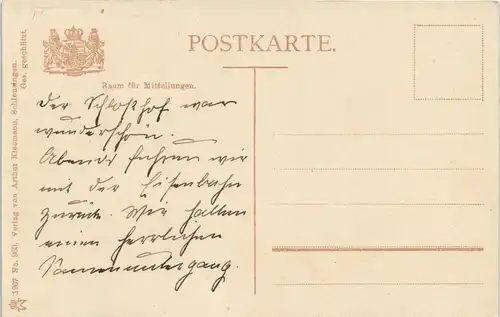 POSTKARTE.
Raum für Mitteilungen.
Der Schloßhof war
wunderschön.
Abends fuhren wir
mit der Eisenbahn
zurück. Wir hatten
einen herrlichen
Sonnenuntergang.
1909 No. 969. Verlag von Arthur Kleemann, Schleusingen.
Ges. geschützt.